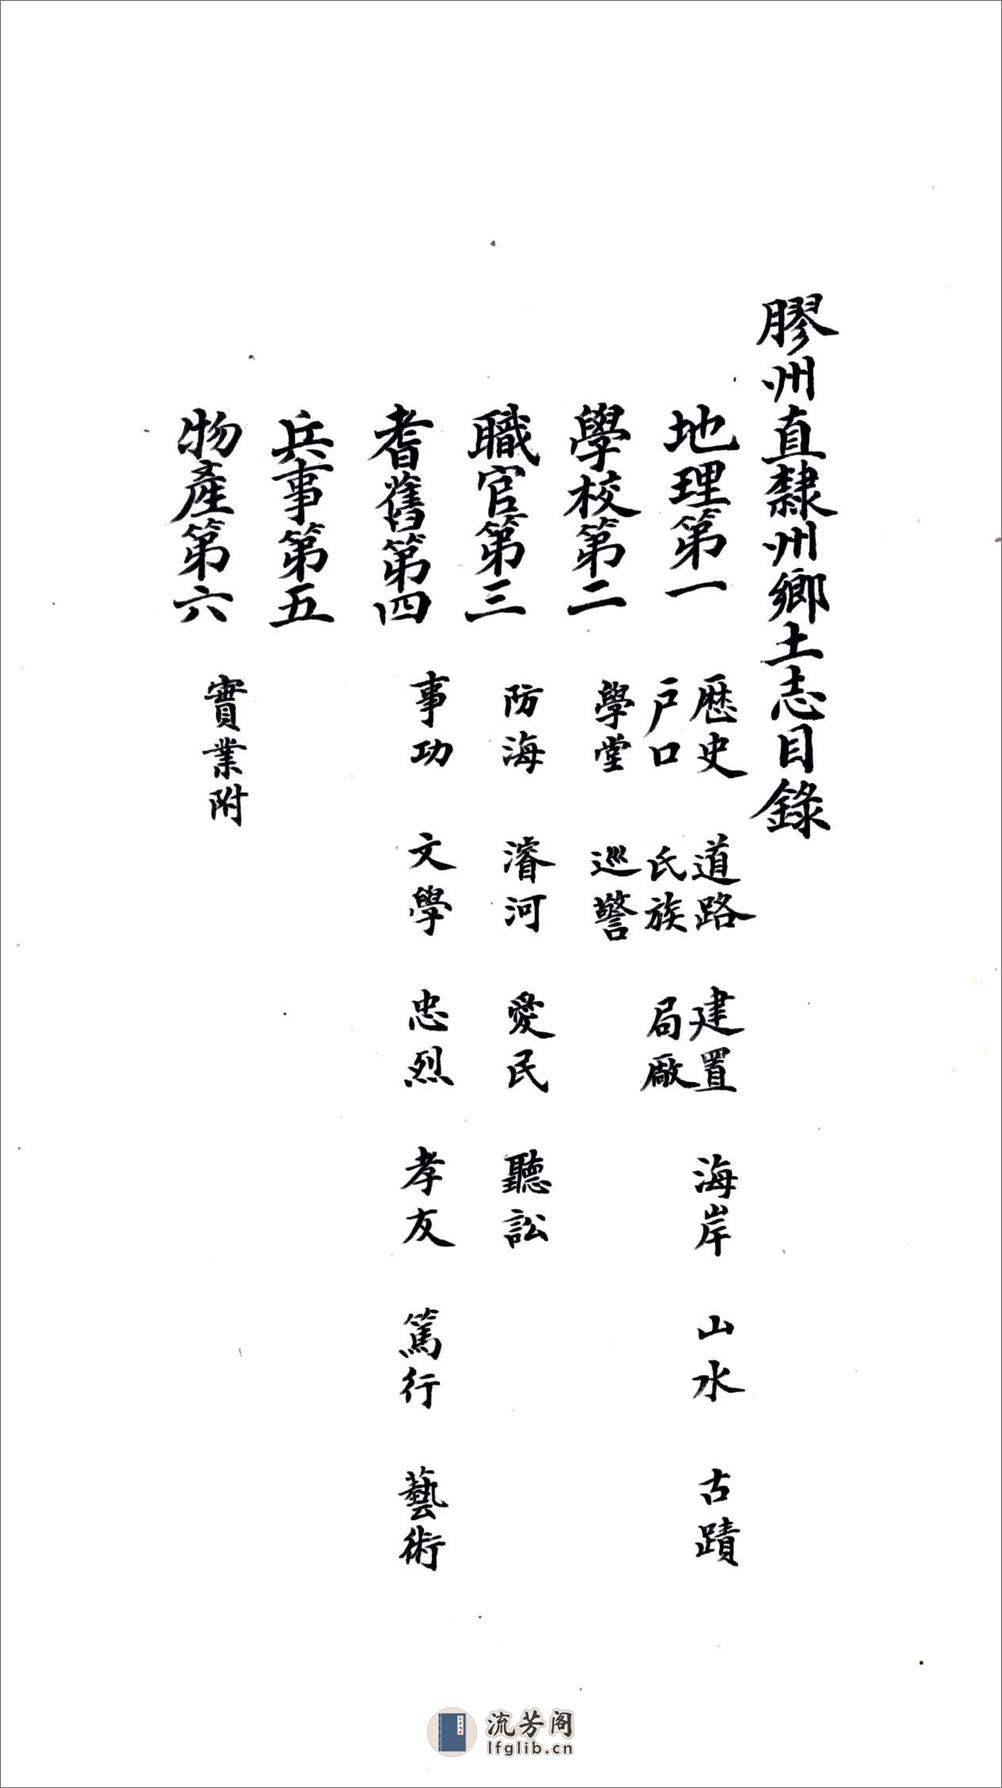 膠州直隸州鄉土志目錄
地理第一 歷史 道路 建置 海岸 山水 古蹟
戶口 氏族 局廠
學校第二 學堂 巡警
職官第三 防海 濬河 愛民 聽訟
耆舊第四 事功 文學 忠烈 孝友 篤行 藝術
兵事第五
物產第六 實業附
流芳阁
lfglib.cn